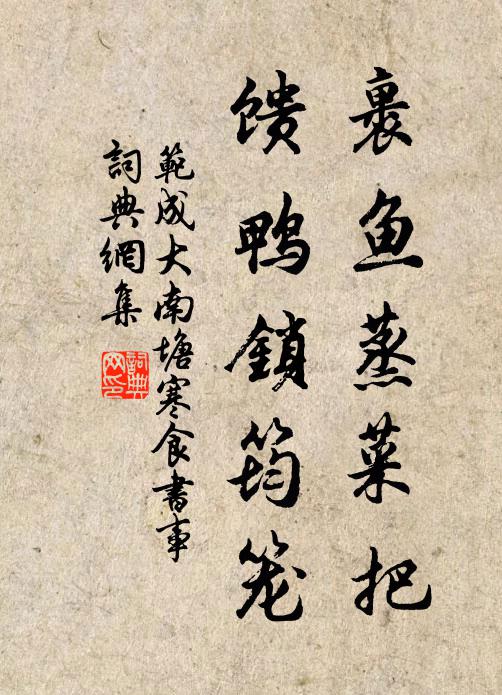 裹鱼蒸菜把
馈鸭鎖筠笼
範成大南塘寒食書事
詞典網集
詞典网印